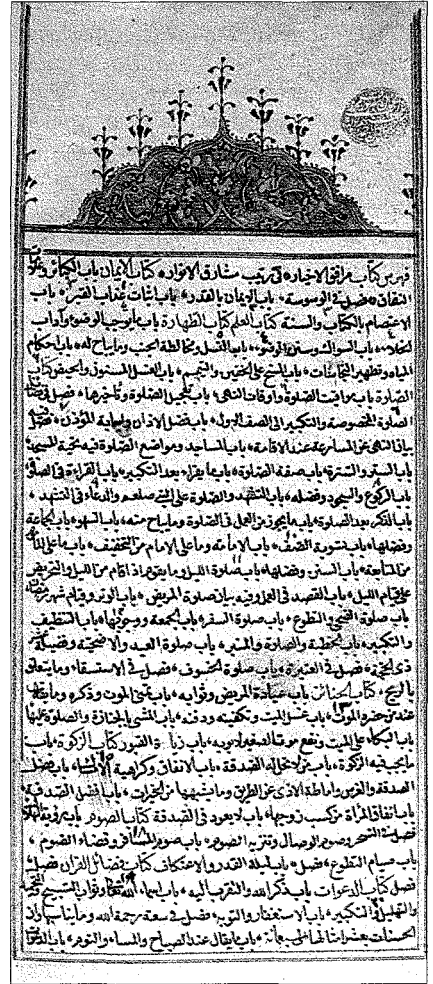 فهرس كتاب مرافق الاخيار في ترتيب مشارق الانوار كتاب الايمان باب الكبائر وعلامات
النفاق فصل في الوسوسة باب الايمان بالقدر باب اثبات عذاب القبر باب
الاعتصام بالكتاب والسنة كتاب العلم كتاب الطهارة باب ما يوجب الوضوء واداب
الخلاء باب السواك وسنن الوضوء باب الغسل ومخالطة الجنب وما يباح له باب احكام
المياه وتطهير النجاسات باب المسح على الخفين والتيمم باب الغسل المسنون والحيض كتاب
الصلوة باب مواقيت الصلوة واوقات النهي باب تعجيل الصلوة وتأخيرها فصل في
الصلوة المخصوصة والتكبير الى الصف الاول باب فضل الاذان واجابة المؤذن فصل
في النهي عن المسارعة عند الاقامة باب المساجد ومواضع الصلوة فيه تحية المسجد
باب الستر والسترة باب صفة الصلوة باب ما يقراء بعد التكبير باب القراءة في الصلوة
باب الركوع والسجود وفضله باب التشهد والصلوة على النبي صلعم والدعاء في التشهد
باب الذكر بعد الصلوة باب ما يجوز من العمل في الصلوة وما يباح منه باب السهو باب الجماعة
وفضلها باب تسوية الصف باب الامامة وما على الامام من التخفيف باب ما على
من المتابعة باب السنن وفضلها باب صلوة الليل وما يقول اذا قام من الليل والتحريض
على قيام الليل باب القصد في العمل وفيه بيان صلوة المريض باب الوتر وقيام شهر رمضان
باب صلوة الضحى والتطوع باب صلوة السفر باب الجمعة ووجوبها باب التنظيف
والتكبير باب الخطبة والصلوة والمنبر باب صلوة العيد والاضحية وفضيلة
ذي الحجة فصل في العتيرة باب صلوة الخسوف فصل في الاستسقاء وما يتعلق
بالريح كتاب الجنائز باب عيادة المريض وثوابه باب تمني الموت وذكره وما يقال
عند من حضره الموت باب غسل الميت وتكفينه ودفنه باب المشي بالجنازة والصلوة عليها
باب البكاء على الميت ونفع موت الصغير لابويه باب زيارة القبور كتاب الزكوة باب
ما يجب فيه الزكوة باب من لا تحل له الصدقة باب الانفاق وكراهية الامساك باب فضل
الصدقة والغرس واماطة الاذى عن الطريق وما يشبهها من الخيرات باب افضل الصدقة
باب انفاق المرأة من كسب زوجها باب لا يعود في الصدقة كتاب الصوم باب رؤية الهلال
فصل في التسحر وصوم الوصال وتنزيه الصوم باب صوم المسافر وقضاء الصوم
باب صيام التطوع فصل باب ليلة القدر والاعتكاف كتاب فضائل القران فصل
فصل كتاب الدعوات باب ذكر الله والتقرب اليه باب اسماء الله تعالى وثواب التسبيح
والتهليل والتكبير باب الاستغفار والتوبة فصل في سعة رحمة الله وما يناسبها وان
الحسنات بعشر امثالها الى سبعمائة باب ما يقال عند الصباح والمساء والنوم باب